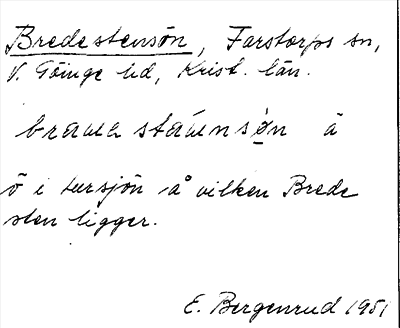 Bredestensön, Farstorps sn,
V. Göinge hd, Krist. län.
stáinsøn å
ö i Lursjön å vilken Brede
sten ligger.
E. Bergenrud 1951